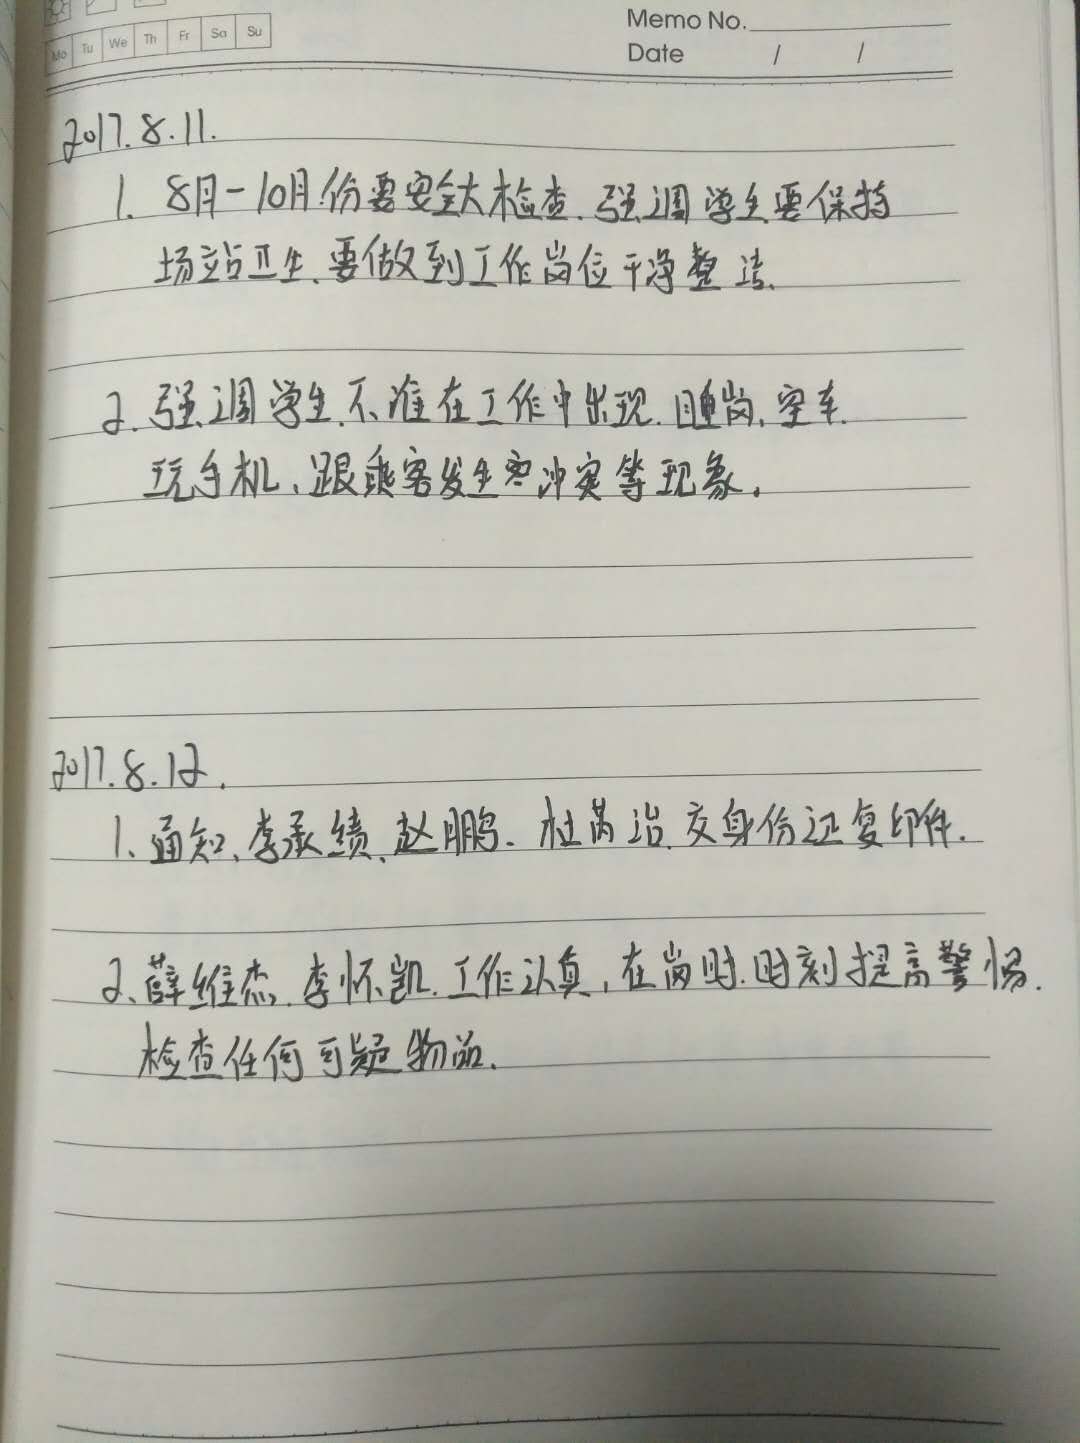 Memo No.
Mo Tu We Th Fr Sa Su
Date / /
2017.8.11.
1. 8月-10月份要安全大检查.强调学生要保持
场站卫生、要做到工作岗位干净整洁.
2.强调学生.不准在工作中出现.睡岗.空车.
玩手机、跟乘客发生 冲突等现象.
2017.8.12.
1、通知、李承绩、赵鹏. 杜 治.交身份证复印件.
2、薛维杰.李怀凯.工作认真,在岗时.时刻提高警惕.
检查任何可疑物品.